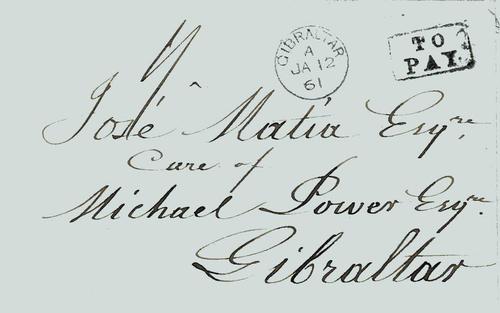 GIBRALTAR
A
JA 12
61
TO
PAY.
José Matia Esqre.
Care of
Michael Power Esqre.
Gibraltar